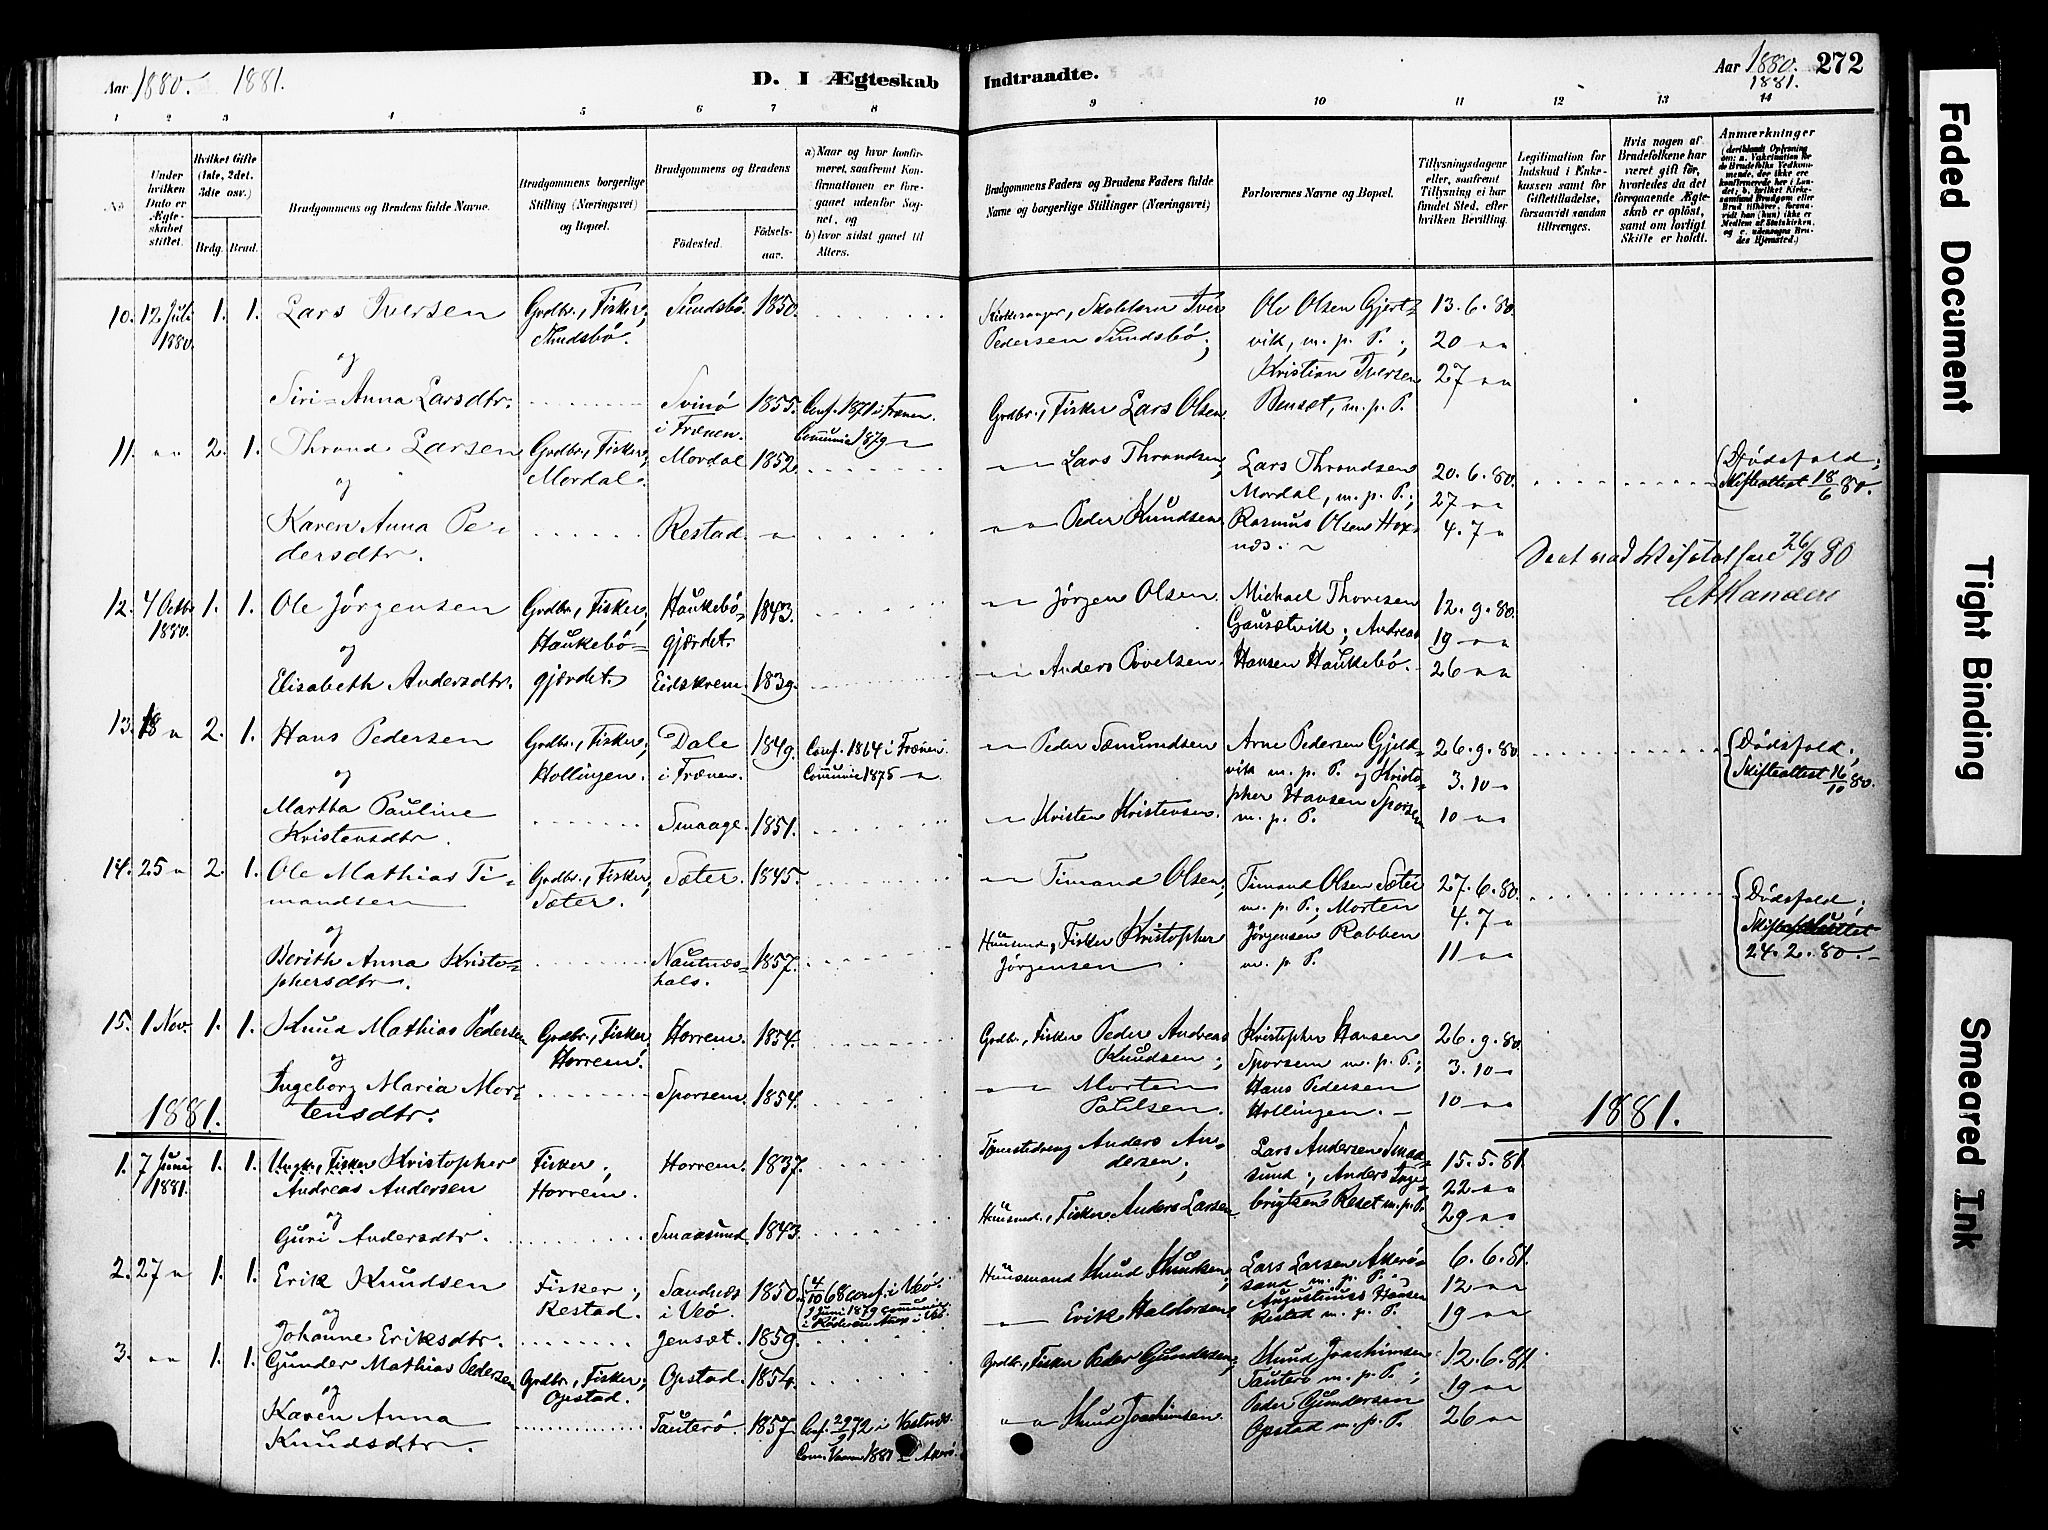 Aar 1880. 1881.
D. I Ægteskab
Indtraadte.
Aar 1880. 272
1881.
1 2 3 4 5 6 7 8
9 10 11 12 13 14
No.
Under hvilken Dato er Ægteskabet stiftet.
Hvilket Gifte (1ste, 2det, 3die osv.)
Brdg. Brud.
Brudgommens og Brudens fulde Navne.
Brudgommens borgerlige Stilling (Næringsvei) og Bopæl.
Brudgommens og Brudens
Födested.
Födselsaar.
a) Naar og hvor konfirmeret, saafremt Konfirmationen er foregaaet udenfor Sognet, og
b) hvor sidst gaaet til Alters.
Brudgommens Faders og Brudens Faders fulde Navne og borgerlige Stillinger (Næringsvei)
Forlovernes Navne og Bopæl.
Tillysningsdagene eller, saafremt Tillysning ei har fundet Sted, efter hvilken Bevilling.
Legitimation for Indskud i Enkekassen samt for Giftetilladelse, forsaavidt saadan tiltrænges.
Hvis nogen af Brudefolkene har været gift för, hvorledes da det foregaaende Ægteskab er oplöst, samt om lovligt Skifte er holdt.
Anmærkninger
10. 12 Juli 1880. 1. 1. Lars Iversen Grdbr., Fisker, Sundsbö. Sundsbö. 1850. Kirkesanger, Skolelærer Iver Pedersen Sundsbö; Ole Olsen Gjertvik, m. p. P.; 13.6.80.
20 " "
og
Siri-Anna Larsdtr. Svinö i Frænen. 1855. Conf. 1871 i Frænen. Communic 1879 " Grdbr., Fisker Lars Olsen Kristian Iversen Bensæt, m. p. P. 27 " "
11. " " 2. 1. Thrond Larsen Grdbr., Fisker, Mordal. Mordal 1852. " Lars Throndsen; Lars Throndsen Mordal, m. p. P.; 20.6.80. Dödsfald; Skifteattest 18/6 80.
27 " "
og
Karen Anna Pedersdtr. Restad. " " " Peder Knudsen Rasmus Olsen 4.7 "
26/9 80
12. 4 Octbr 1880. 1. 1. Ole Jörgensen Grdbr., Fisker, Haukebögjærdet. Haukebögjærdet. 1843. " Jörgen Olsen Michael Thoresen Gausetvik; Andreas Hansen Haukebö. 12.9.80.
19 " "
og
Elisabeth Andersdtr. Eidskrem. 1839. " Anders Povelsen 26 " "
13. 18 " 2. 1. Hans Pedersen Grdbr., Fisker, Hollingen. Dale i Frænen. 1849. Conf. 1864 i Frænen. Communic 1875 " " Peder Sæmundsen Arne Pedersen Gjeldvik m. p. P. og Kristopher Hansen Sporsem m. p. P. 26.9.80. Dödsfald; Skifteattest 16/10 80.
3.10 "
og
Martha Pauline Kristensdtr. Smaage. 1851. " Kristen Kristensen 10 " "
14. 25 " 2. 1. Ole Mathias Timandsen Grdbr., Fisker, Sæter. Sæter. 1845. " Timand Olsen; Timand Olsen Sæter m. p. P.; Morten Jörgensen Rabben m. p. P. 27.6.80. Dödsfald; 24.2.80.
4.7 "
og
Berith Anna Kristophersdtr. Nautneshals. 1857. Husmd., Fisker Kristopher Jörgensen 11 " "
15. 1 Nov. 1. 1. Knud Mathias Pedersen Grdbr., Fisker, Horrem. Horrem. 1854. Grdbr., Fisker Peder Andreas Knudsen; Kristopher Hansen Sporsem m. p. P.; 26.9.80.
3.10 "
og
Ingeborg Maria Mortensdtr. Sporsem. 1854. " " Morten Hans Pedersen Hollingen. 10 " "
1881.
1881.
1. 7 Juni 1881. 1. 1. Ungk., Fisker Kristopher Andreas Andersen Fisker, Horrem. Horrem. 1837. Anders Andersen; Lars Andersen Smaasund; Anders Ingebrigtsen Reset m. p. P. 15.5.81.
22 " "
og
Guri Andersdtr. Smaasund. 1843. Husmd., Fisker Anders Larsen 29 " "
2. 27 " 1. 1. Erik Knudsen Fisker, Restad. Sandnes i Veö. 1850. 4/10 68 conf. i Veö. Juni 1879 communic. Husmand Knud Knudsen; Lars Larsen Akerösand m. p. P. 6.6.81.
12 " "
og
Johanne Eriksdtr. Jensæt. 1859. " Erik Haldorsen Augustinus Hansen Restad m. p. P. 19 " "
3. " " 1. 1. Gunder Mathias Pedersen Grdbr., Fisker, Opstad. Opstad. 1854. Grdbr., Fisker Peder Gundersen; Knud Joachimsen Tauterö m. p. P.; 12.6.81.
19 " "
og
Karen Anna Knudsdtr. Tauterö. 1857. Conf. 29/9 72 i Vestnes. 1881 i Akerö. " " Knud Joachimsen. Peder Gundersen Opstad m. p. P. 26 " "
Faded Document
Tight Binding
Smeared Ink